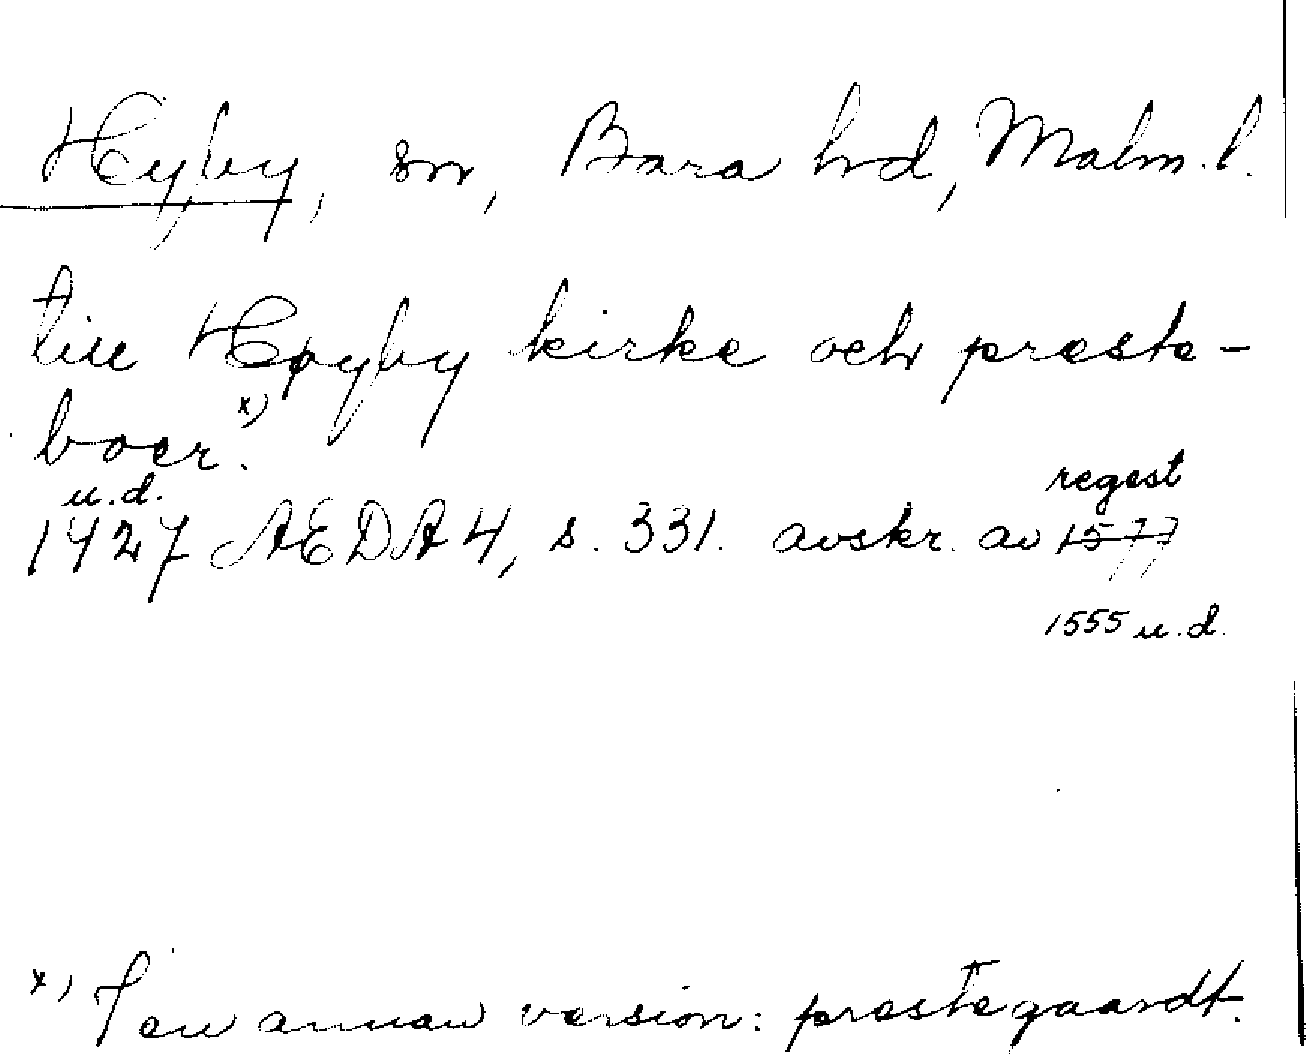 Hyby, sn, Bara hd, Malm. l.
till Høyby kirke och præste-
boer.x)
u.d.
regest
1427 AEDA 4, s. 331. avskr. av 1577
1555 u.d.
x) I en annan version: præstegaardt.